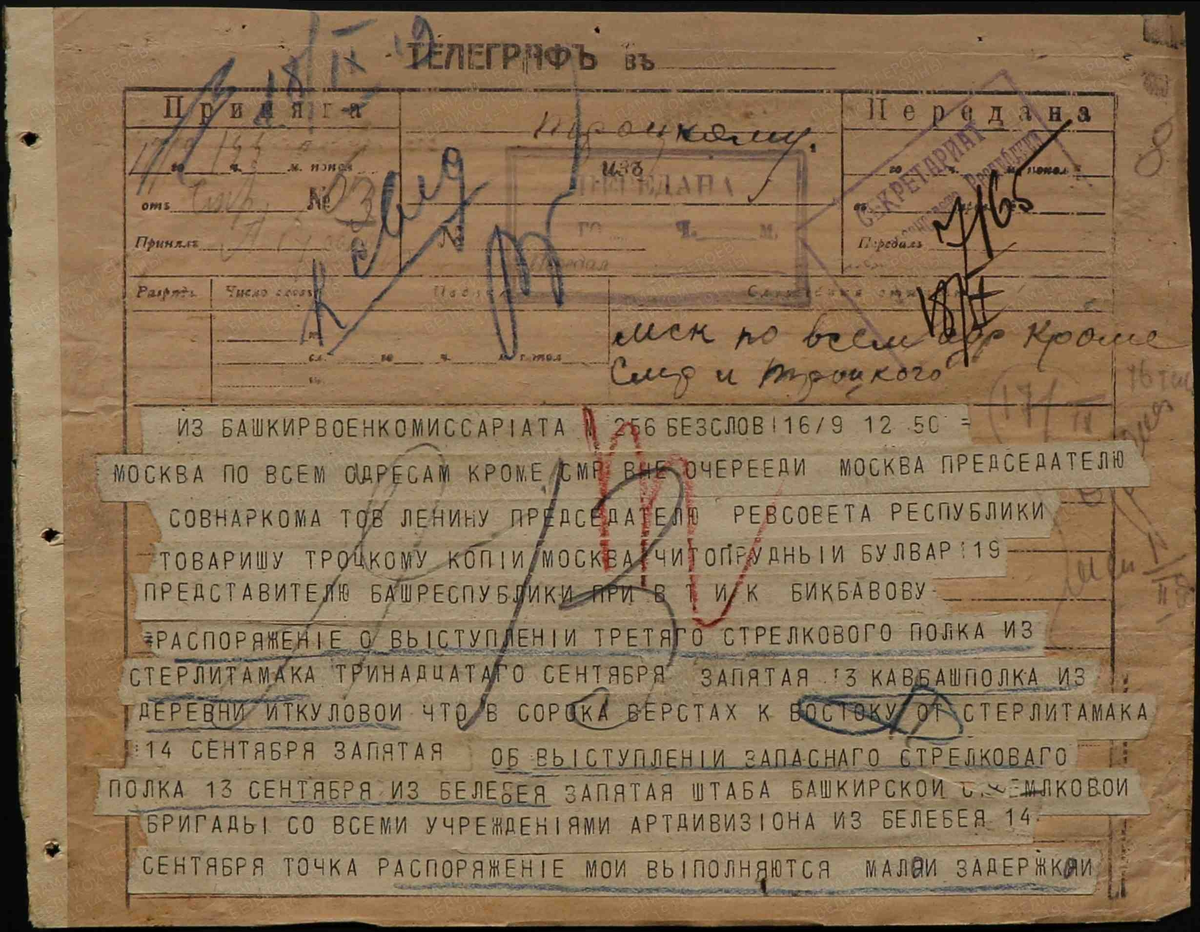 18/IX 19
ТЕЛЕГРАФЪ въ
Принята
Передана
Троцкому.
изъ
8
го ч. м. попол
ПЕРЕДАНА
СЕКРЕТАРИАТ
отъ № 03
ГО Ч. М.
7/65
Принялъ
№
Передалъ
Передал
18/IX
Разрядъ Число словъ
мск по всем адр кроме
Смр и Троцкого
17/IX
ИЗ БАШКИРВОЕНКОМИССАРІАТА N 256 БЕЗСЛОВ 16/9 12 50 =
МОСКВА ПО ВСЕМ АДРЕСАМ КРОМЕ СМР ВНЕ ОЧЕРЕЕДИ МОСКВА ПРЕДСЕДАТЕЛЮ
СОВНАРКОМА ТОВ ЛЕНИНУ ПРЕДСЕДАТЕЛЮ РЕВСОВЕТА РЕСПУБЛИКИ
ТОВАРИШУ ТРОЦКОМУ КОПІИ МОСКВА ЧИТОПРУДНЫІЙ БУЛВАР 19
ПРЕДСТАВИТЕЛЮ БАШРЕСПУБЛИКИ ПРИ В Т И К БИКБАВОВУ
=РАСПОРЯЖЕНІЕ О ВЫІСТУПЛЕНІИ ТРЕТЯГО СТРЕЛКОВОГО ПОЛКА ИЗ
СТЕРЛИТАМАКА ТРИНАДЦАТАГО СЕНТЯБРЯ ЗАПЯТАЯ 13 КАВБАШПОЛКА ИЗ
ДЕРЕВНИ ИТКУЛОВОИ ЧТО В СОРОКА ВЕРСТАХ К ВОСТОКУ ОТ СТЕРЛИТАМАКА
14 СЕНТЯБРЯ ЗАПЯТАЯ ОБ ВЫІСТУПЛЕНІИ ЗАПАСНАГО СТРЕЛКОВАГО
ПОЛКА 13 СЕНТЯБРЯ ИЗ БЕЛЕБЕЯ ЗАПЯТАЯ ШТАБА БАШКИРСКОИ СТЕМЛКОВОИ
БРИГАДЫІ СО ВСЕМИ УЧРЕЖДЕНІЯМИ АРТДИВИЗІОНА ИЗ БЕЛЕБЕЯ 14
СЕНТЯБРЯ ТОЧКА РАСПОРЯЖЕНІЕ МОИ ВЫІПОЛНЯЮТСЯ МАЛОИ ЗАДЕРЖКОИ